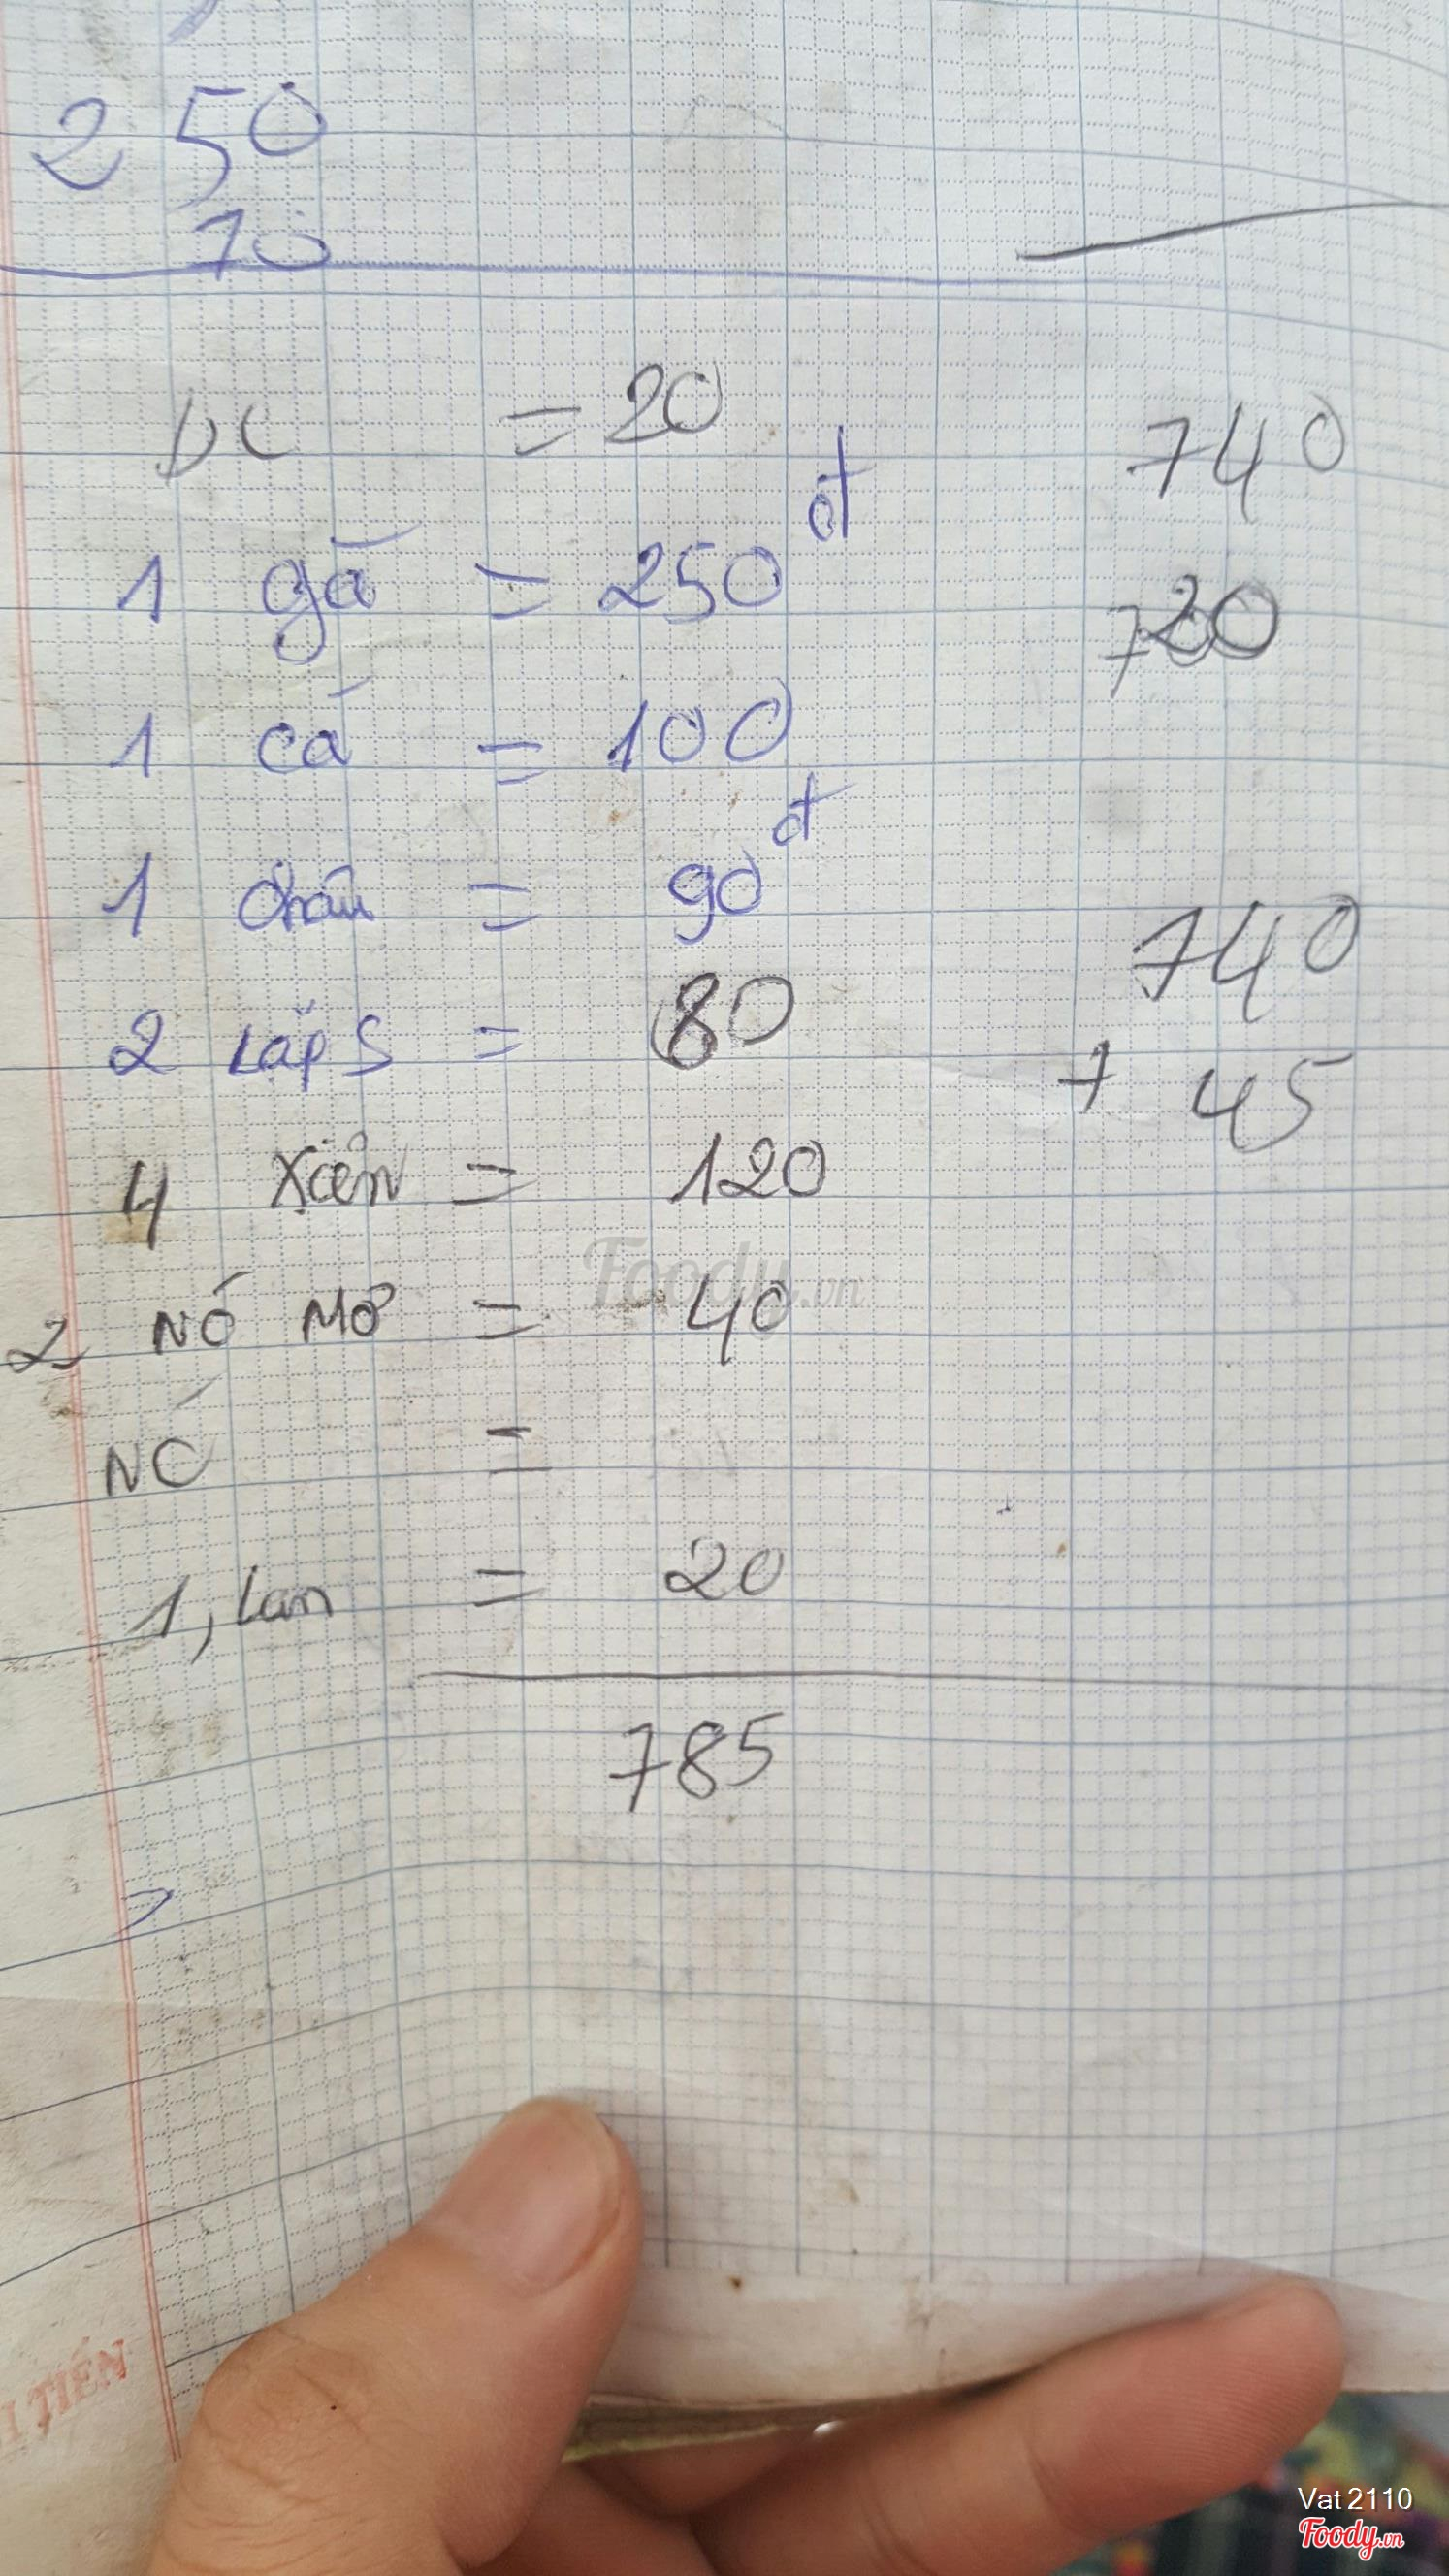 250
70
DC = 20
740
1 gà = 250đ
720
1 cá = 100
1 = 90đ
740
2 Lạp S = 80
+ 45
4 Xiên = 120
Foody.vn
2 NÓ MỠ = 40
NÓ =
1, Lan = 20
785
I TIẾN
Vat 2110
Foody.vn